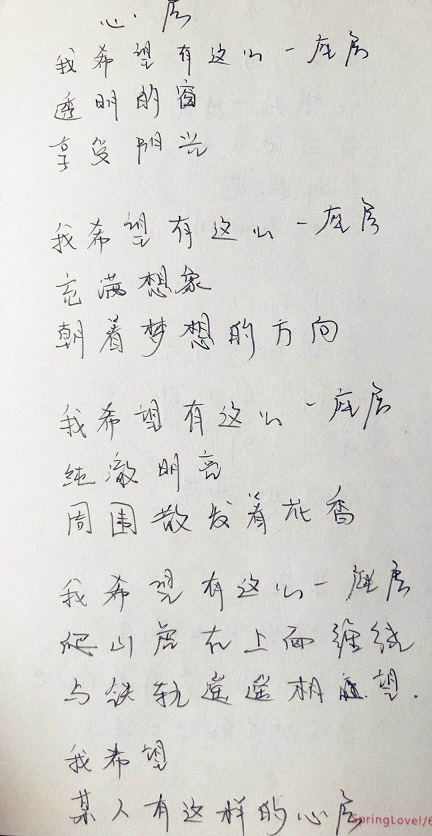 心房
我希望有这么一座房
透明的窗
享受阳光
我希望有这么一座房
充满想象
朝着梦想的方向
我希望有这么一座房
纯澈明亮
周围散发着花香
我希望有这么一座房
爬山虎在上面缠绕
与铁轨遥遥相望.
我希望
某人有这样的心房
SpringLovel/6